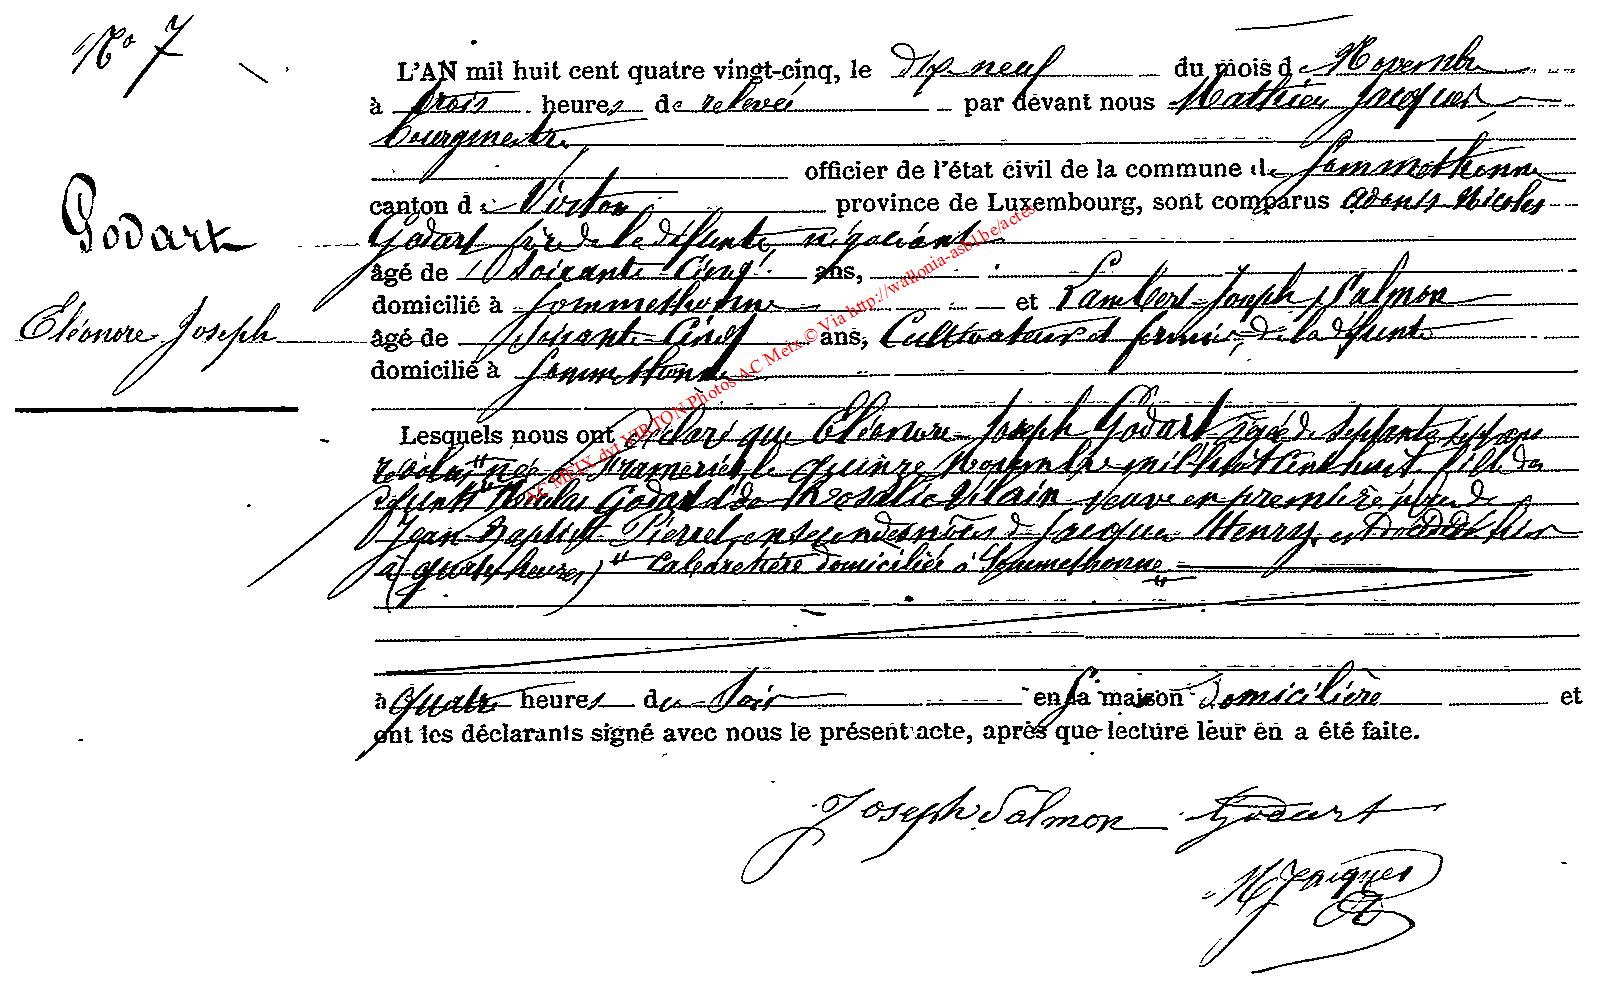 No 7
L'AN mil huit cent quatre vingt-cinq, le dix neuf du mois de Novembre
à trois heures de relevée par devant nous Mathieu Jacques,
bourgmestre
officier de l'état civil de la commune de Sommethonne
canton de Virton province de Luxembourg, sont comparus Nicolas
Godart
Godart frère de la défunte, négociant
âgé de soixante-cinq ans,
domicilié à Sommethonne et Lambert-Joseph Salmon
Eléonore-Joseph
âgé de soixante-cinq ans, Cultivateur et fermier de la défunte
domicilié à Sommethonne
Lesquels nous ont déclaré que Eléonore-Joseph Godart âgée de septante sept ans
née à le quinze Novembre mil huit cent huit fille de
défunts Nicolas Godart et de Rosalie Vilain veuve en premières noces de
Jean Baptiste Pierret, en secondes noces de Jacques Henry, est décédée hier
à (quatre heures) " Cabaretière domiciliée à Sommethonne "
à quatre heures du soir en sa maison domicilière et
ont les déclarants signé avec nous le présent acte, après que lecture leur en a été faite.
Joseph Salmon Godart
M Jacques
AC MEIX dvt VIRTON Photos AC Meix © Via http://wallonia-asbl.be/actes